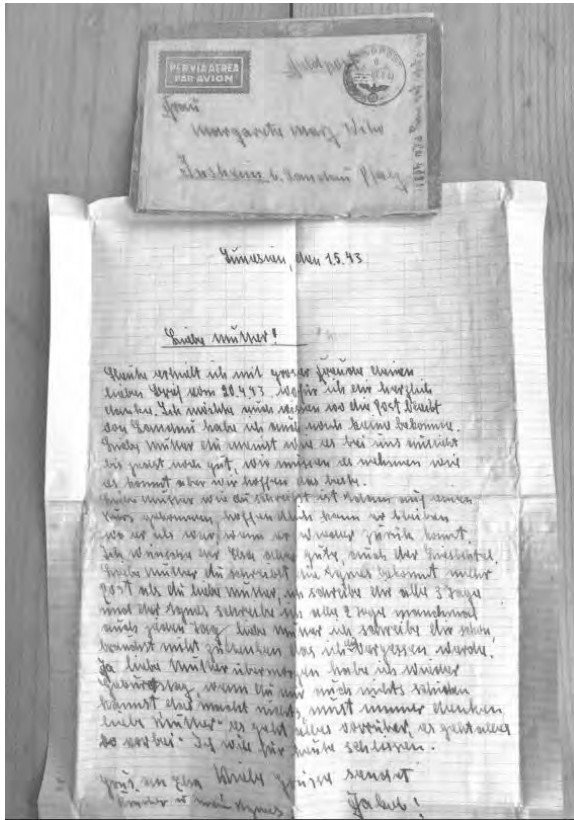 PER VIA AEREA
PAR AVION
Feldpost
Frau
Margarete Marz Wtw
b. Landau Pfalz
Tunesien, den 1.5.43
Liebe Mutter!
Heute erhielt ich mit groser Freude deinen
lieben Brief vom 20.4.43 wofür ich dir herzlich
danke. Ich möchte auch wissen wo die Post bleibt
von habe ich auch noch keine bekommen.
Liebe Mutter du meinst wie es bei uns aussieht
bis jetzt noch gut, wir müssen es nehmen wie
es kommt aber wir hoffen das beste.
Liebe Mutter wie du schreibst ist auf einen
Kurs gekommen hoffendlich kann er bleiben
wo er als war, wann er wieder zurük kommt.
Ich wünsche der Elsa alles gute, auch der
Liebe Mutter du schreibst die Agnes bekommt mehr
Post als du liebe Mutter, ich schreibe dir alle 3 Tage
und der Agnes schreibe ich alle 2 Tage manchmal
auch jeden Tag liebe Mutter ich schreibe dir schon,
brauchst nicht zu denken das ich dich vergessen werde.
Ja liebe Mutter übermorgen habe ich wieder
Geburtstag wenn du mir auch nichts schicken
kannst das macht nichts, must immer denken
liebe Mutter es geht alles vorrüber, es geht alles
vorbei. Ich will für heute schliessen.
Viele Grüsse sendet
Grus an Elsa
Jakob!